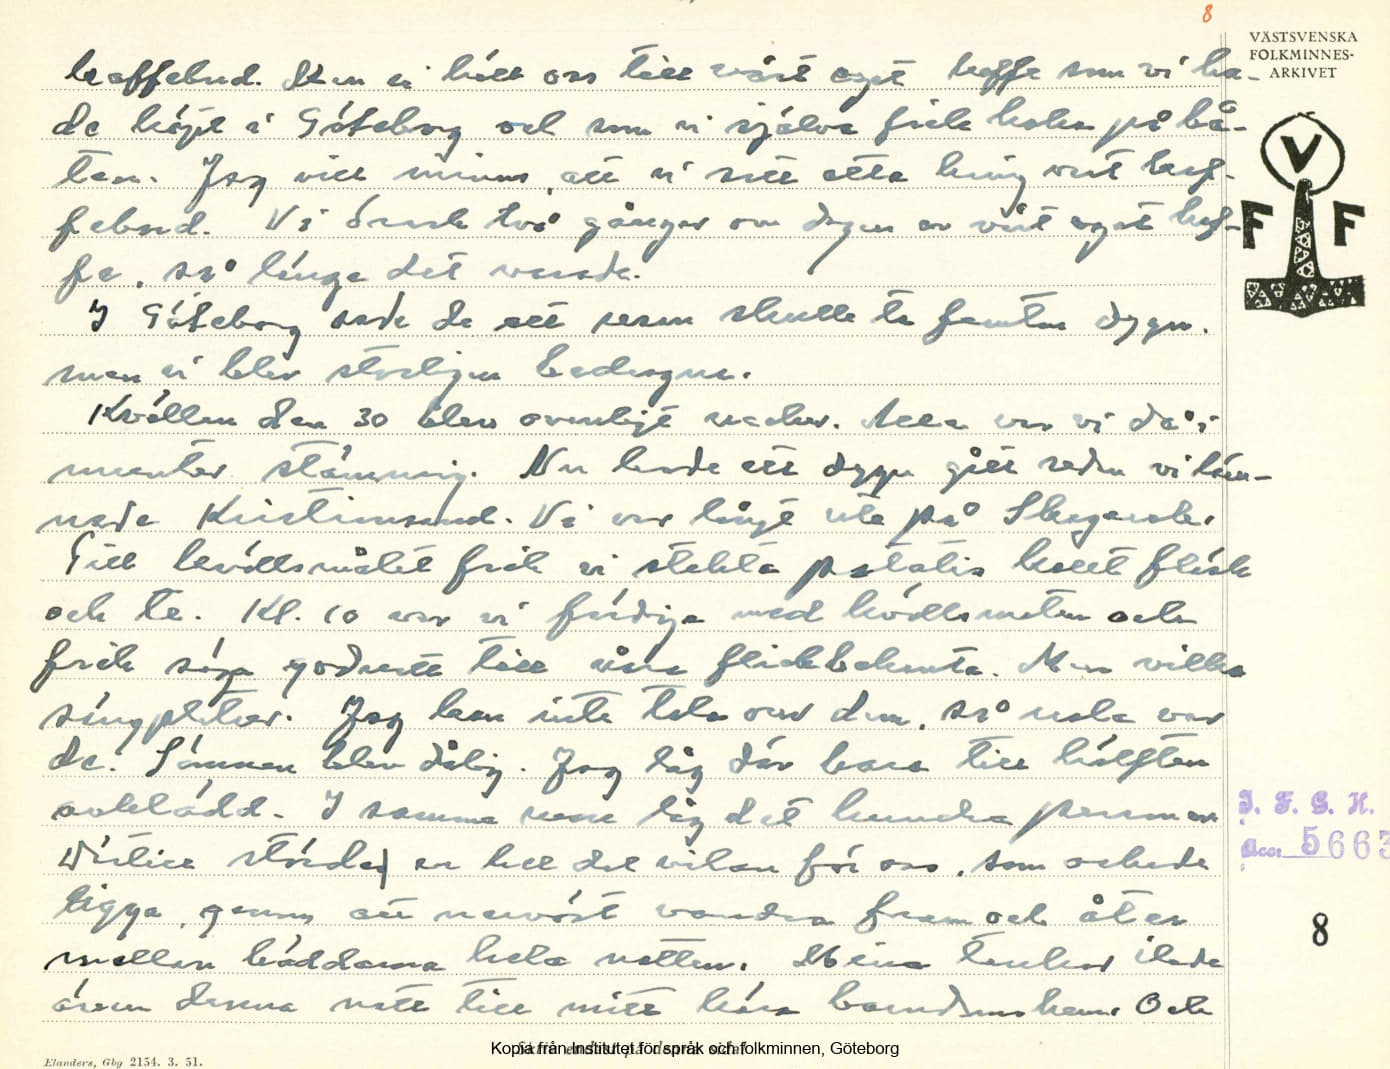 8
VÄSTSVENSKA
FOLKMINNES-
ARKIVET
V
F F
kaffebud. Men vi höll oss till vårt eget kaffe som vi ha-
de köpt i Göteborg och som vi själva fick koka på bå-
ten. Jag vill minnas, att vi satt åtta kring vårt kaf-
febord. Vi drack två gånger om dagen av vårt eget kaf-
fe, så länge det varade.
I Göteborg sade de att resan skulle ta femton dygn.
men vi blev storligen bedragna.
Kvällen den 30 blev ovanligt vacker. Alla var vi då i
munter stämning. Nu hade ett dygn gått sedan vi läm-
nade Kristinsand. Vi var långt ute på Skagerak.
Till kvällsmålet fick vi stekta potatis kallt fläsk
och te. Kl. 10 var vi färdiga med kvällsmaten och
fick säga godnatt till våra flickbekanta. Men vilka
sängplatser. Jag kan inte tala om dem, så usla var
de. Sömnen blev dålig. Jag låg där bara till hälften
avklädd. I samma rum låg det hundra personer
Wirtien störde en hel del vilan för oss, som orkade
ligga, genom att nervöst vandra fram och åter
mellan bäddarna hela natten. Mina tankar ilade
även denna natt till mitt kära barndomshem. Och
I. F. G. H.
Acc. 5663
8
Elanders, Gbg 2154. 3. 51.
Kopia från Institutet för språk och folkminnen, Göteborg